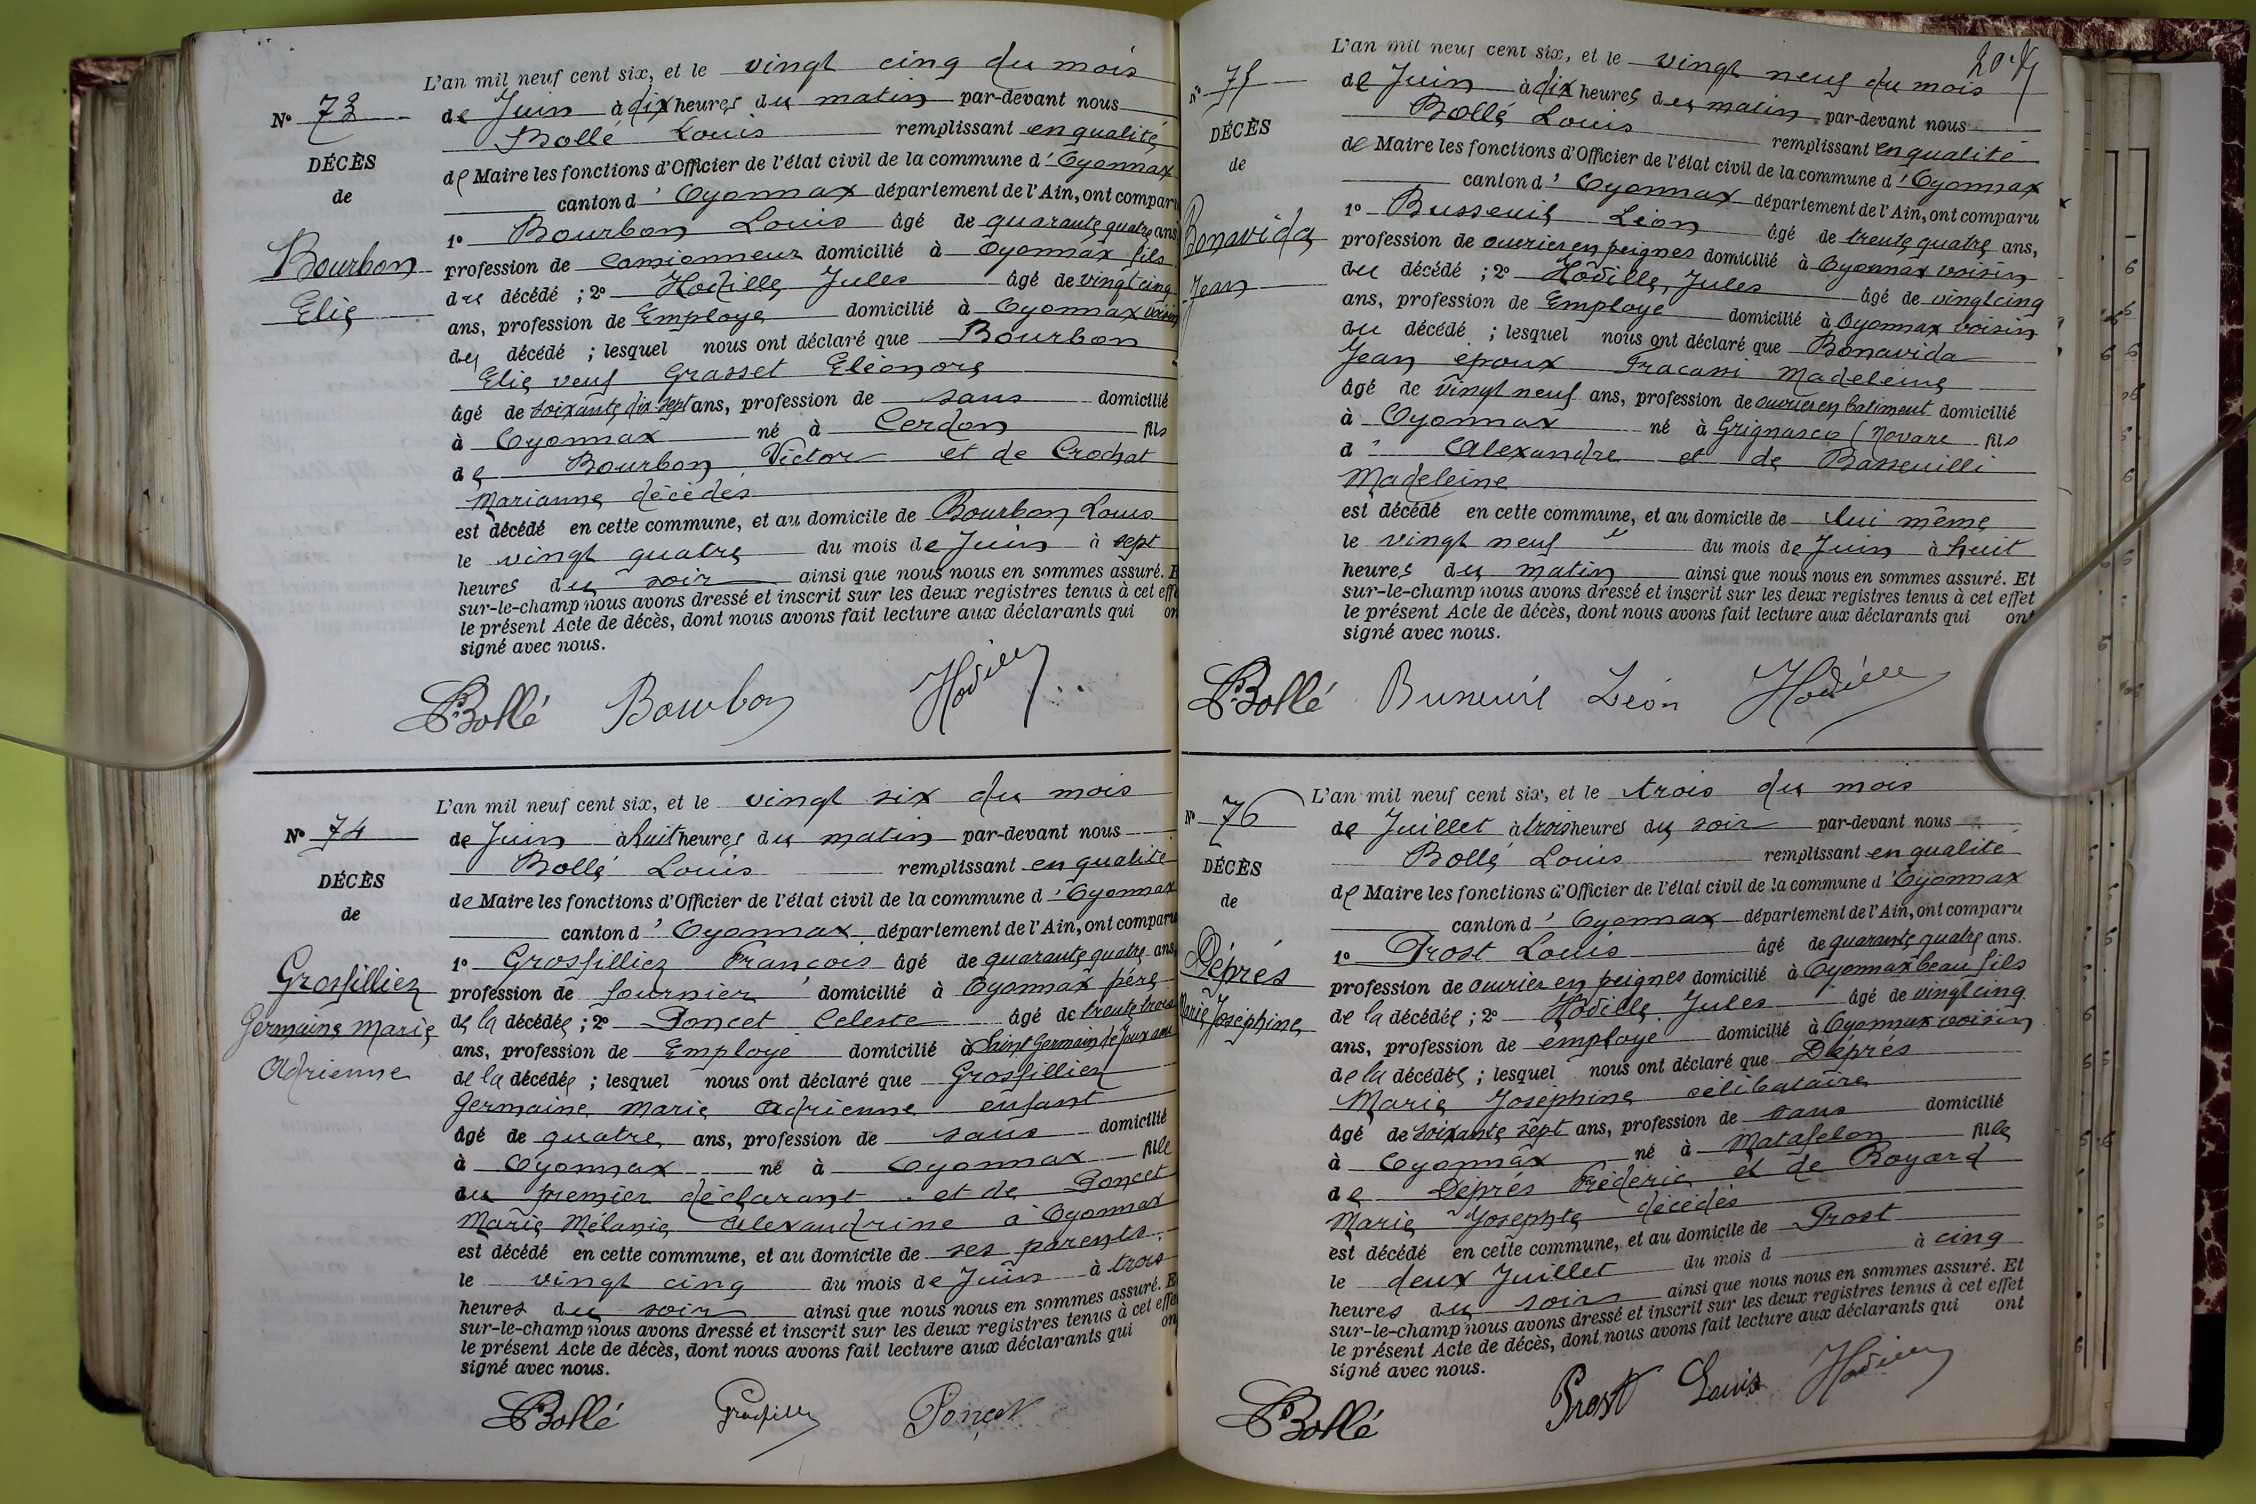 L'an mil neuf cent six, et le vingt cinq du mois
N° 73
de Juin à dix heures du matin par-devant nous
Bollé Louis remplissant en qualité
DÉCÈS
de Maire les fonctions d'Officier de l'état civil de la commune d'Oyonnax
de
canton d'Oyonnax département de l'Ain, ont comparu
1° Bourbon Louis âgé de quarante quatre ans
Bourbon
profession de camionneur domicilié à Oyonnax fils
Elie
du décédé ; 2° Hodille Jules âgé de vingt cinq
ans, profession de Employé domicilié à Oyonnax voisin
du décédé ; lesquel nous ont déclaré que Bourbon
Elie veuf Grasset Eléonore
âgé de soixante dix sept ans, profession de sans domicilié
à Oyonnax né à Cerdon fils
de Bourbon Victor et de Crochat
Marianne décédés
est décédé en cette commune, et au domicile de Bourbon Louis
le vingt quatre du mois de Juin à sept
heures du soir ainsi que nous nous en sommes assuré. E
sur-le-champ nous avons dressé et inscrit sur les deux registres tenus à cet effe
le présent Acte de décès, dont nous avons fait lecture aux déclarants qui on
signé avec nous.
Bollé Bourbon Hodille
L'an mil neuf cent six, et le vingt six du mois
N° 74
de Juin à huit heures du matin par-devant nous
Bollé Louis remplissant en qualité
DÉCÈS
de Maire les fonctions d'Officier de l'état civil de la commune d'Oyonnax
de
canton d'Oyonnax département de l'Ain, ont comparu
1° Grosfilliez François âgé de quarante quatre ans
Grosfilliez
profession de fournier domicilié à Oyonnax père
Germaine Marie
de la décédée ; 2° Poncet Celeste âgé de trente trois
Adrienne
ans, profession de Employé domicilié à Saint Germain de Joux ami
de la décédée ; lesquel nous ont déclaré que Grosfilliez
Germaine Marie Adrienne enfant
âgé de quatre ans, profession de sans domicilié
à Oyonnax né à Oyonnax fille
du premier déclarant et de Poncet
Marie Mélanie Alexandrine à Oyonnax
est décédé en cette commune, et au domicile de ses parents
le vingt cinq du mois de Juin à trois
heures du soir ainsi que nous nous en sommes assuré. E
sur-le-champ nous avons dressé et inscrit sur les deux registres tenus à cet effe
le présent Acte de décès, dont nous avons fait lecture aux déclarants qui on
signé avec nous.
Bollé Grosfilliez Poncet
L'an mil neuf cent six, et le vingt neuf du mois
N° 75
de Juin à dix heures du matin par-devant nous
Bollé Louis remplissant en qualité
DÉCÈS
de Maire les fonctions d'Officier de l'état civil de la commune d'Oyonnax
de
canton d'Oyonnax département de l'Ain, ont comparu
1° Busseuil Léon âgé de trente quatre ans,
Bonavida
profession de ouvrier en peignes domicilié à Oyonnax voisin
Jean
du décédé ; 2° Hodille, Jules âgé de vingt cinq
ans, profession de Employé domicilié à Oyonnax voisin
du décédé ; lesquel nous ont déclaré que Bonavida
Jean époux Fracassi Madeleine
âgé de vingt neuf ans, profession de ouvrier en batiment domicilié
à Oyonnax né à Grignasco (Novare fils
d' Alexandre et de Basseuilli
Madeleine
est décédé en cette commune, et au domicile de lui même
le vingt neuf du mois de Juin à huit
heures du matin ainsi que nous nous en sommes assuré. Et
sur-le-champ nous avons dressé et inscrit sur les deux registres tenus à cet effet
le présent Acte de décès, dont nous avons fait lecture aux déclarants qui ont
signé avec nous.
Bollé Buseuil Léon Hodille
L'an mil neuf cent six, et le trois du mois
N° 76
de Juillet à trois heures du soir par-devant nous
Bollé Louis remplissant en qualité
DÉCÈS
de Maire les fonctions d'Officier de l'état civil de la commune d'Oyonnax
de
canton d'Oyonnax département de l'Ain, ont comparu
1° Prost Louis âgé de quarante quatre ans.
Déprés
profession de ouvrier en peignes domicilié à Oyonnax beau fils
Marie Joséphine
de la décédée ; 2° Hodille Jules âgé de vingt cinq
ans, profession de employé domicilié à Oyonnax voisin
de la décédée ; lesquel nous ont déclaré que Déprés
Marie Joséphine célibataire
âgé de soixante sept ans, profession de sans domicilié
à Oyonnax né à Matafelon fille
de Déprés Fréderic et de Boyard
Marie Josephte décédés
est décédé en cette commune, et au domicile de Prost
le deux Juillet du mois d à cinq
heures du soir ainsi que nous nous en sommes assuré. Et
sur-le-champ nous avons dressé et inscrit sur les deux registres tenus à cet effet
le présent Acte de décès, dont nous avons fait lecture aux déclarants qui ont
signé avec nous.
Bollé Prost Louis Hodille